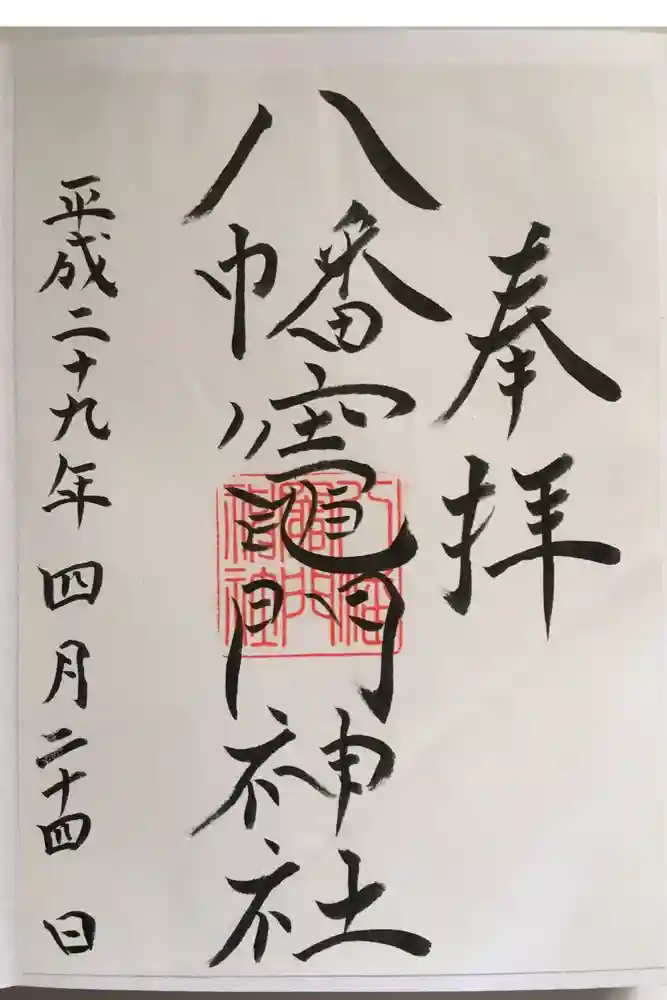 奉拝
八幡竈門神社
平成二十九年四月二十四日
八幡竈門神社